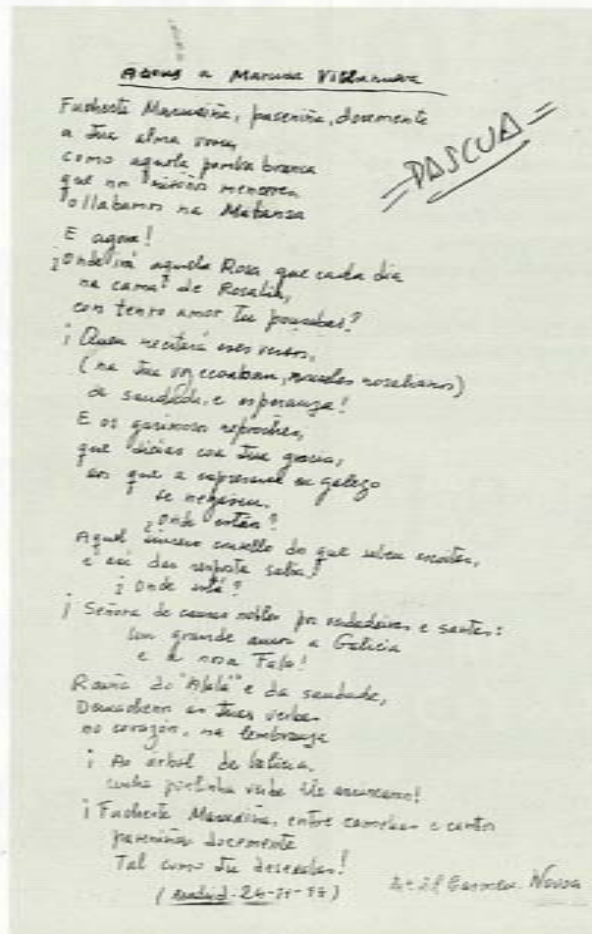 Adeus a Maruxa Villanueva
Fucheste Maruxiña, paseniña, docemente
a tua alma voou,
como aquela pomba branca
que no
ollabamos na Matanza
=PASCUA=
E agora!
¿Onde irá aquela Rosa que cada dia
na cama de Rosalia,
con tenro amor tu pousabas?
¡Quen recitará eses versos,
(na tua voz ecoaban, rosalianos)
de saudade, e esperanza!
E os garimosos reproches,
que dicias coa tua gracia,
aos que a expresarse en galego
se negasen.
¿Onde están?
Aquel sincero consello do que sabeu escoitar,
e así dar resposta sabia!
¿Onde está?
¡Señora de causas nobles por verdadeiras e santas:
con grande amor a Galicia
e á nosa Fala!
Raiña do "Alalá" e da saudade,
as tuas verbas
no corazón, na lembranza
¡Ao árbol de Galicia,
unha verde lle arrincano!
¡Fucheste Maruxiña, entre camelias e cantos
paseniña docemente
Tal como tu desexabas!
(Madrid-26-
Novoa